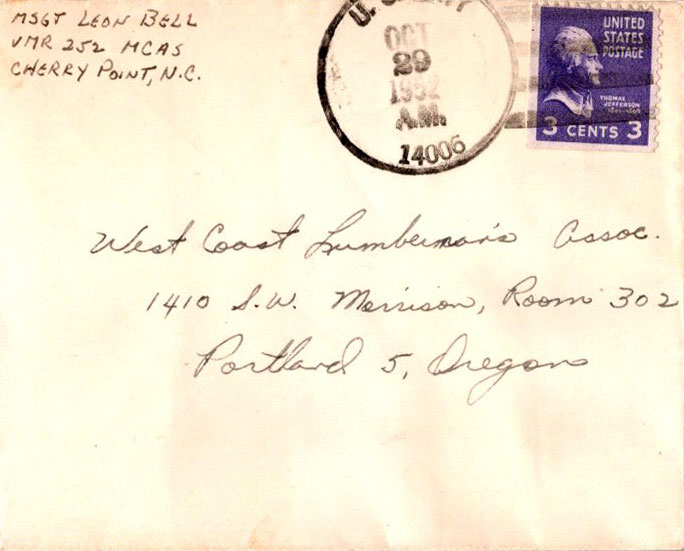 MSGT LEON BELL
VMR 252 MCAS
CHERRY POINT, N.C.
U. S.
OCT
29
1952
A.M.
14006
UNITED
STATES
POSTAGE
THOMAS
JEFFERSON
3 CENTS 3
West Coast Lumberman's Assoc.
1410 S.W. Morrison, Room 302
Portland 5, Oregon